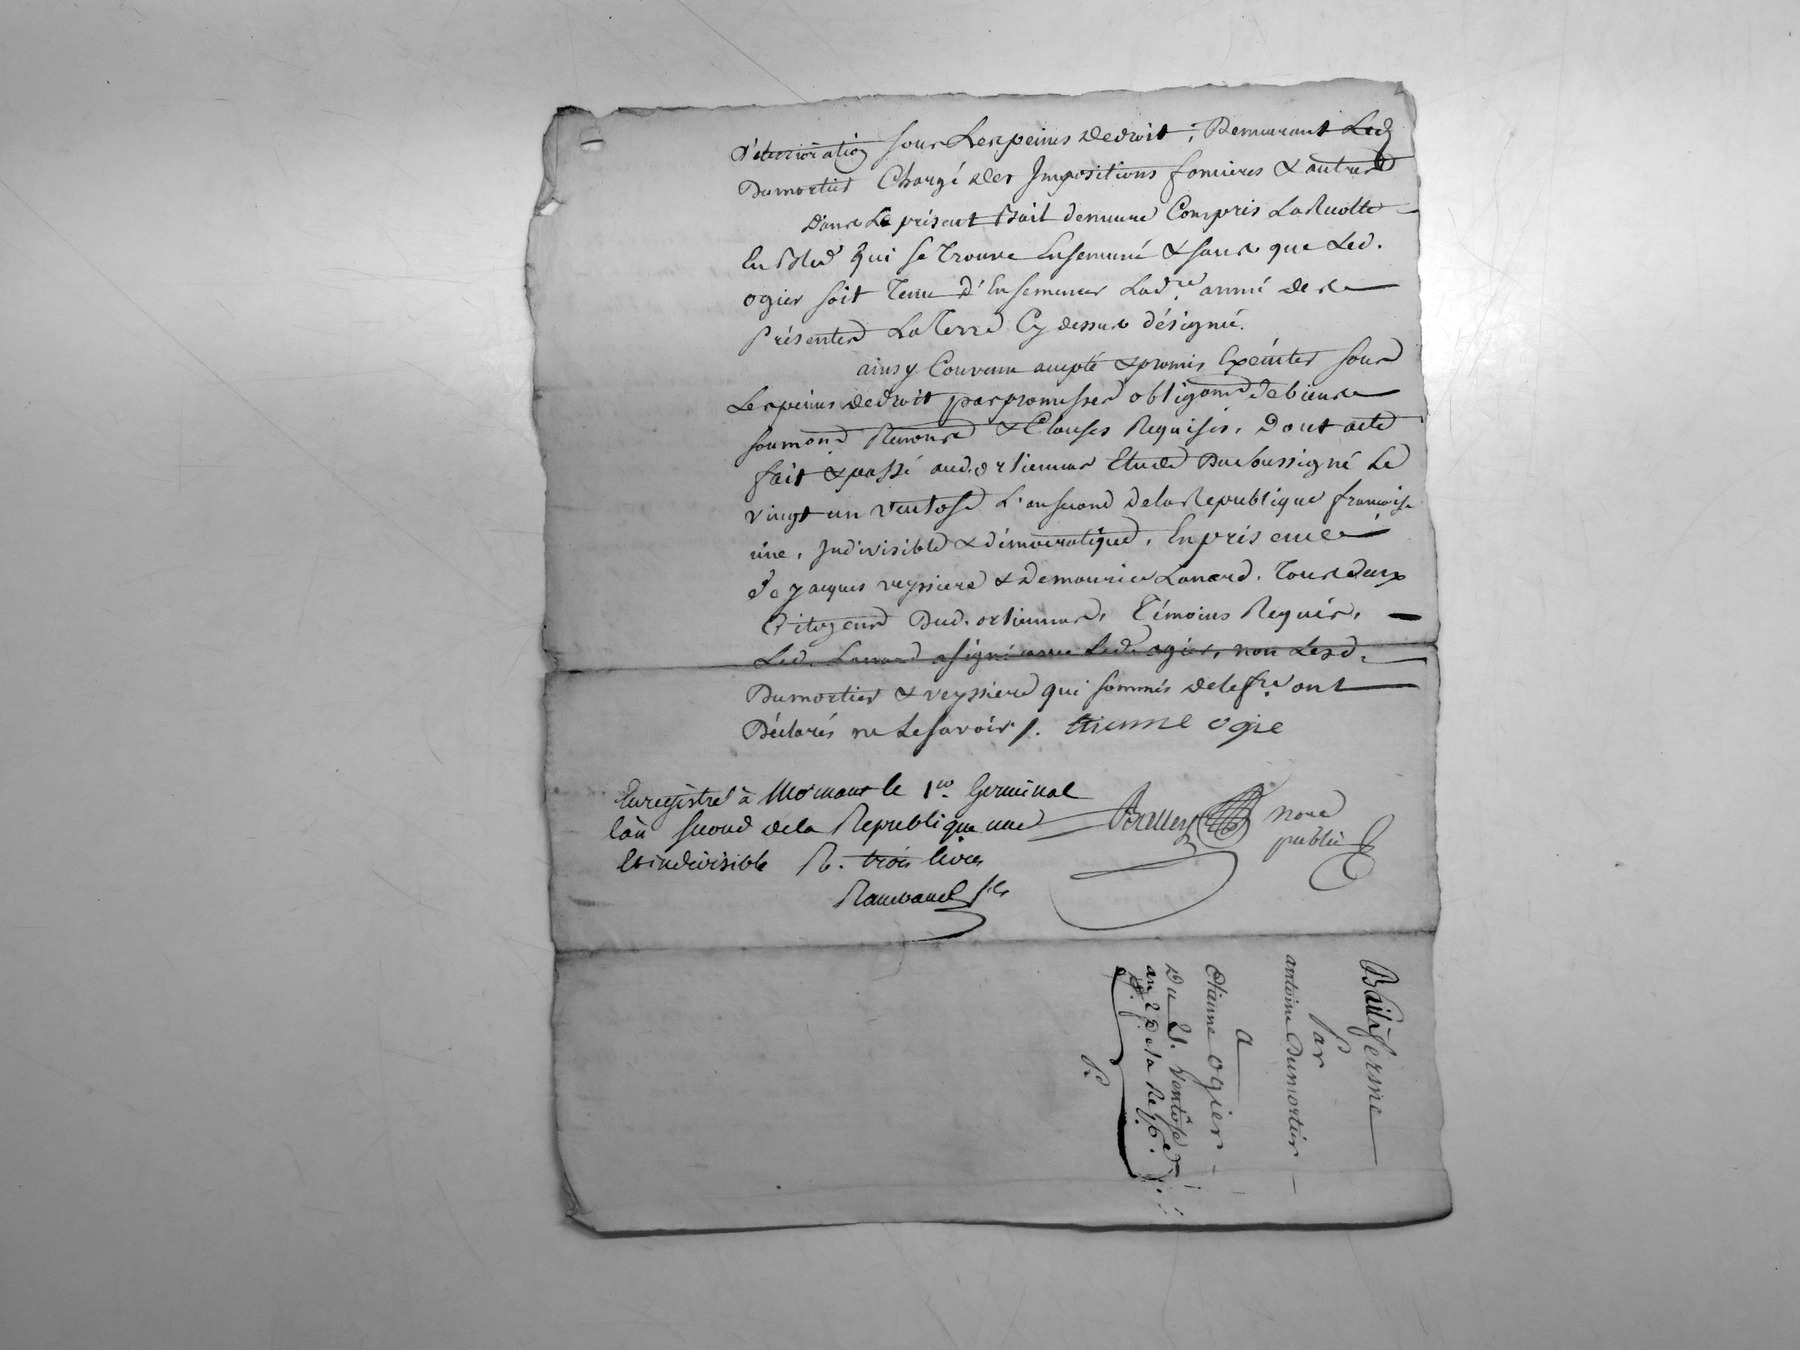 Déterrioration sous Les peines de droit ; Demeurant Led
Dumortier Chargé des Impositions foncieres & autres
Dans Le présent Bail demeure Compris La Recolte
En Bled qui se trouve Ensemencé & sans que Led.
ogier soit Tenu d'Ensemencer Lad.re année de ses
présentes La Terre Cy dessus désignée.
ainsy Convenu accepté & promis Exécuter sous
Les peines de droit par promesses obligaons de biens
soumons Renons & Clauses Requises. Dont acte
fait & passé aud. orlienas Etude Du soussigné Le
vingt un ventose L'an second de la Republique francoise
une, Indivisible & démocratique, En présence
de jacques veyssiere & de maurice Lonard. Tous deux
Citoyens Dud. orlienas, Témoins Requis,
Led. Lonard a signé avec Led. ogier, non Lesd.
Dumortier & veyssiere qui sommés de le fre ont
Déclarés ne Le savoir /. etienne ogie
Enregistré à Mornant le 1er Germinal
l'an second de la Republique une
et indivisible R. trois livres
fils
nore
public
Bail à ferme
Par
antoine Dumortier
A
etienne ogier
Du 21. Ventôse
an 2 de la Rep.